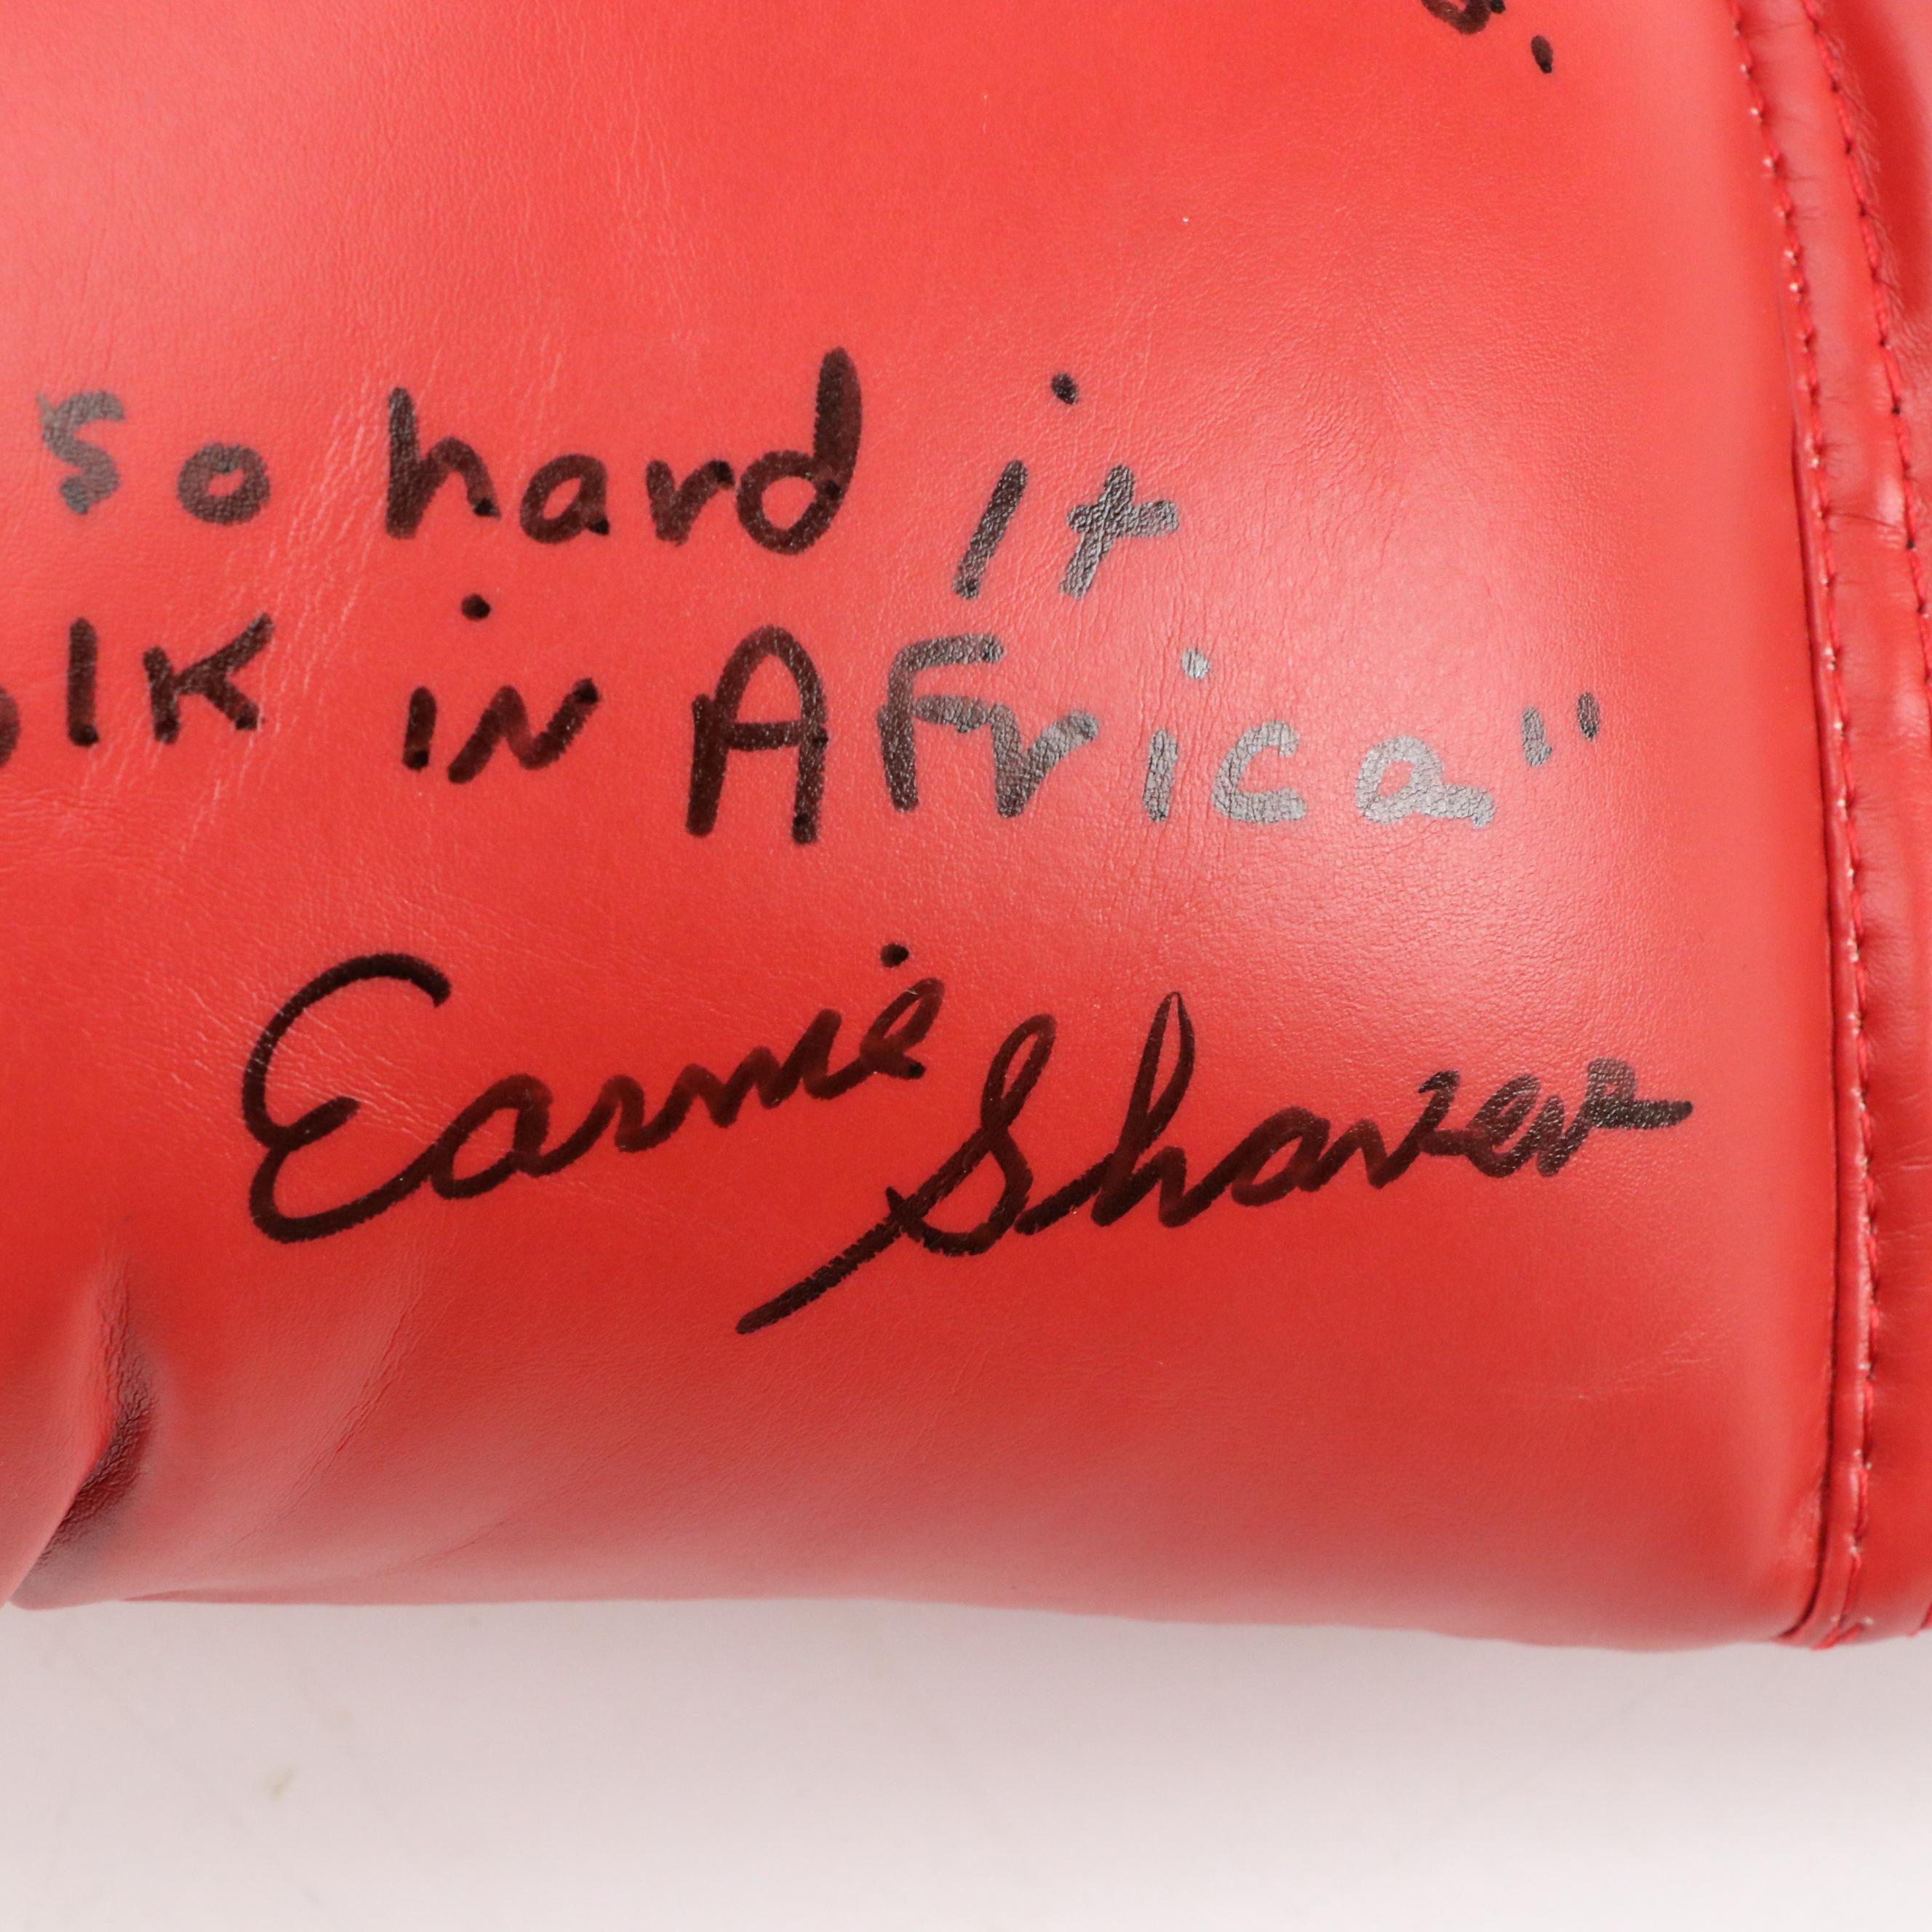 so hard it
olk in Africa"
Earnie Shavers